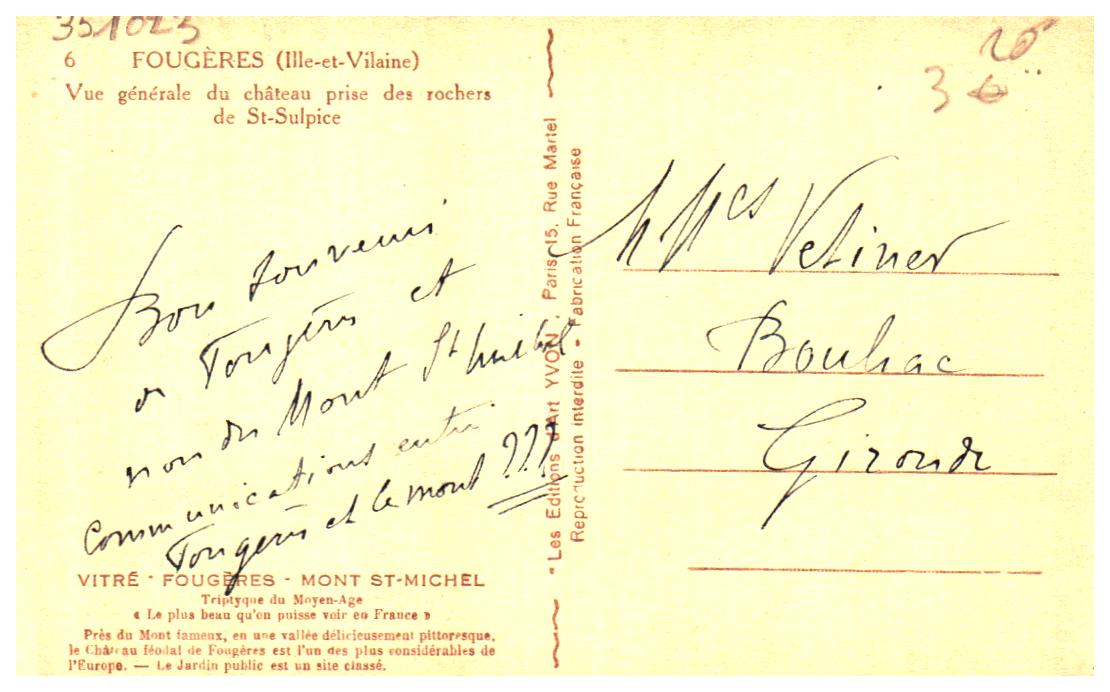 351023
20
3 6
6 FOUGÈRES (Ille-et-Vilaine)
Vue générale du château prise des rochers
de St-Sulpice
Bon souvenir
de Fougères et
non du Mont St Michel
Communications entre
Fougères et le mont ???
VITRÉ - FOUGÈRES - MONT ST-MICHEL
Triptyque du Moyen-Age
« Le plus beau qu'on puisse voir en France »
Près du Mont fameux, en une vallée délicieusement pittoresque,
le Château féodal de Fougères est l'un des plus considérables de
l'Europe. — Le Jardin public est un site classé.
"Les Editions d'Art YVON", Paris, 15, Rue Martel
Reproduction interdite - Fabrication Française
Vetiner
Gironde